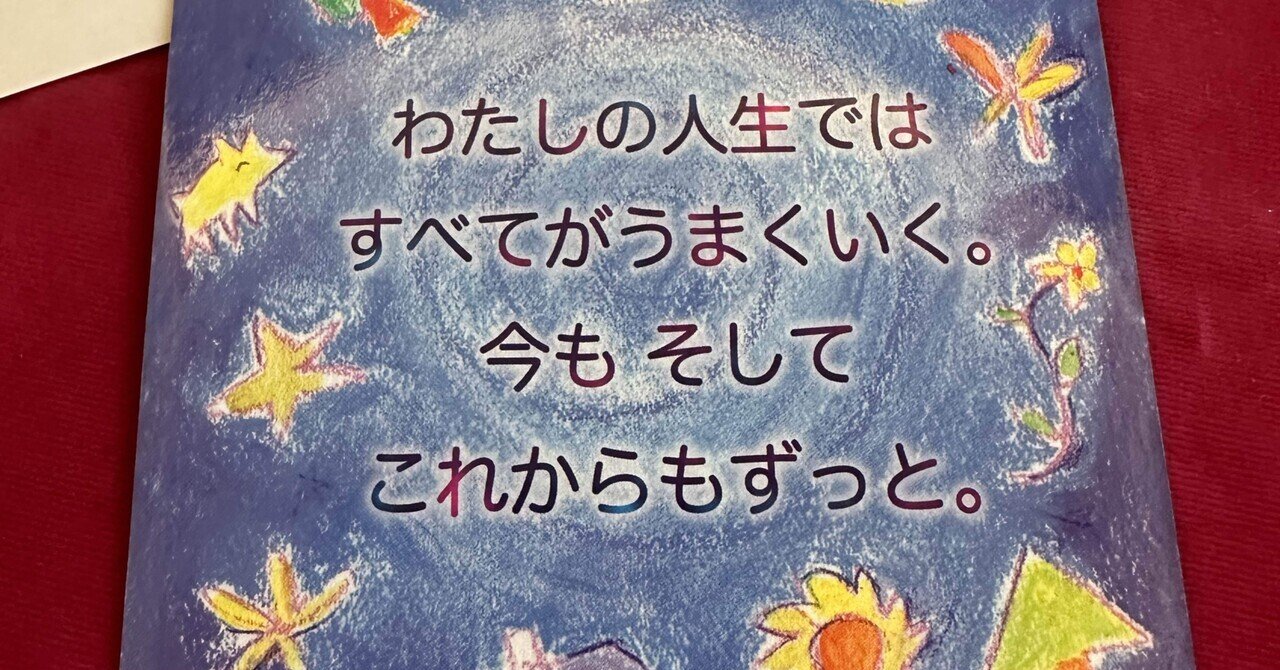 わたしの人生では
すべてがうまくいく。
今も そして
これからもずっと。